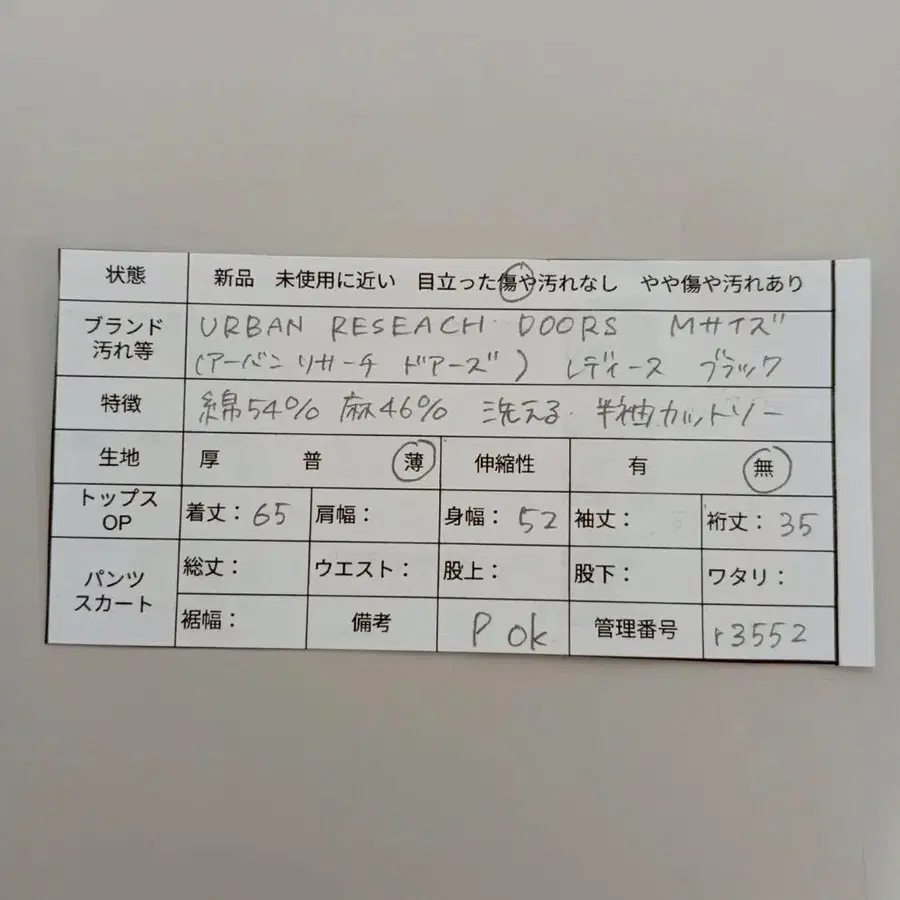 状態 新品 未使用に近い 目立った傷や汚れなし やや傷や汚れあり
ブランド 汚れ等 URBAN RESEACH DOORS Mサイズ
(アーバンリサーチ ドアーズ) レディース ブラック
特徴 綿54% 麻46% 洗える 半袖カットソー
生地 厚 普 薄 伸縮性 有 無
トップス OP 着丈：65 肩幅： 身幅：52 袖丈： 裄丈：35
パンツ スカート 総丈： ウエスト： 股上： 股下： ワタリ：
裾幅： 備考 P ok 管理番号 r3552